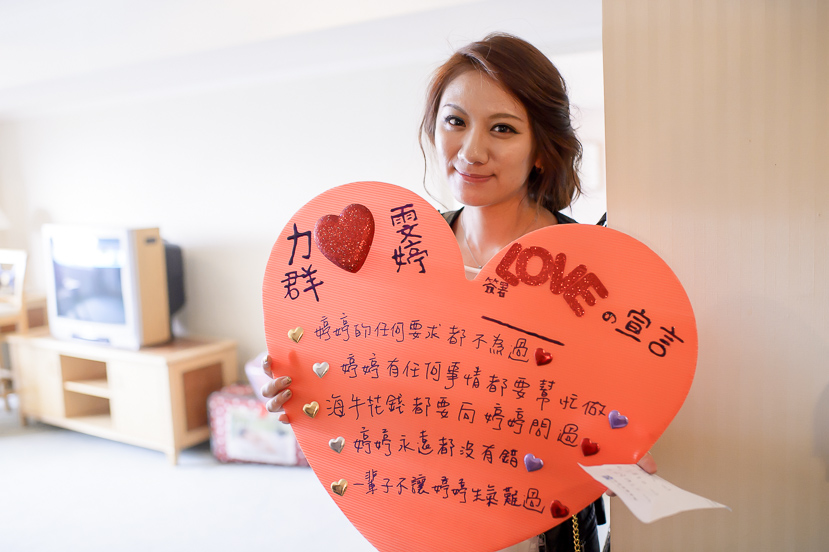 力群 雯婷
LOVEの宣言
簽署
婷婷的任何要求都不為過
婷婷有任何事情都要幫忙做
海牛花錢都要向婷婷問過
婷婷永遠都沒有錯
一輩子不讓婷婷生氣難過